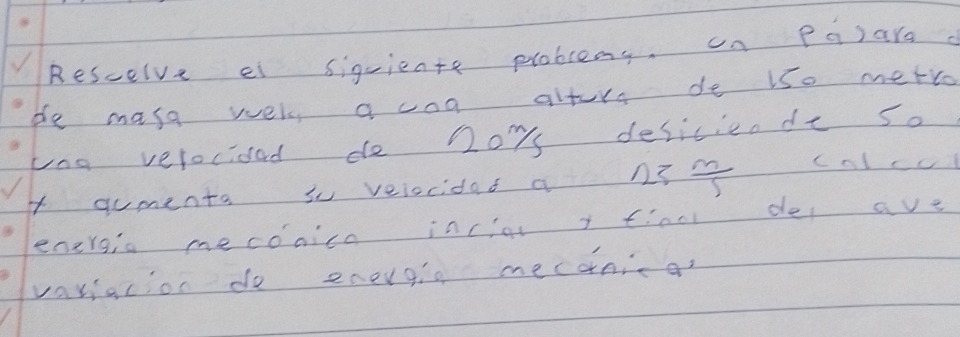 Rescelve el siguiente problema. un Pájaro d
de masa vuela a una altura de 150 metro
una velocidad de 20 m/s desiciende 50
y aumenta su velocidad a 25 m/s calcul
energía mecánica incial y final del ave
variación de energía mecánica